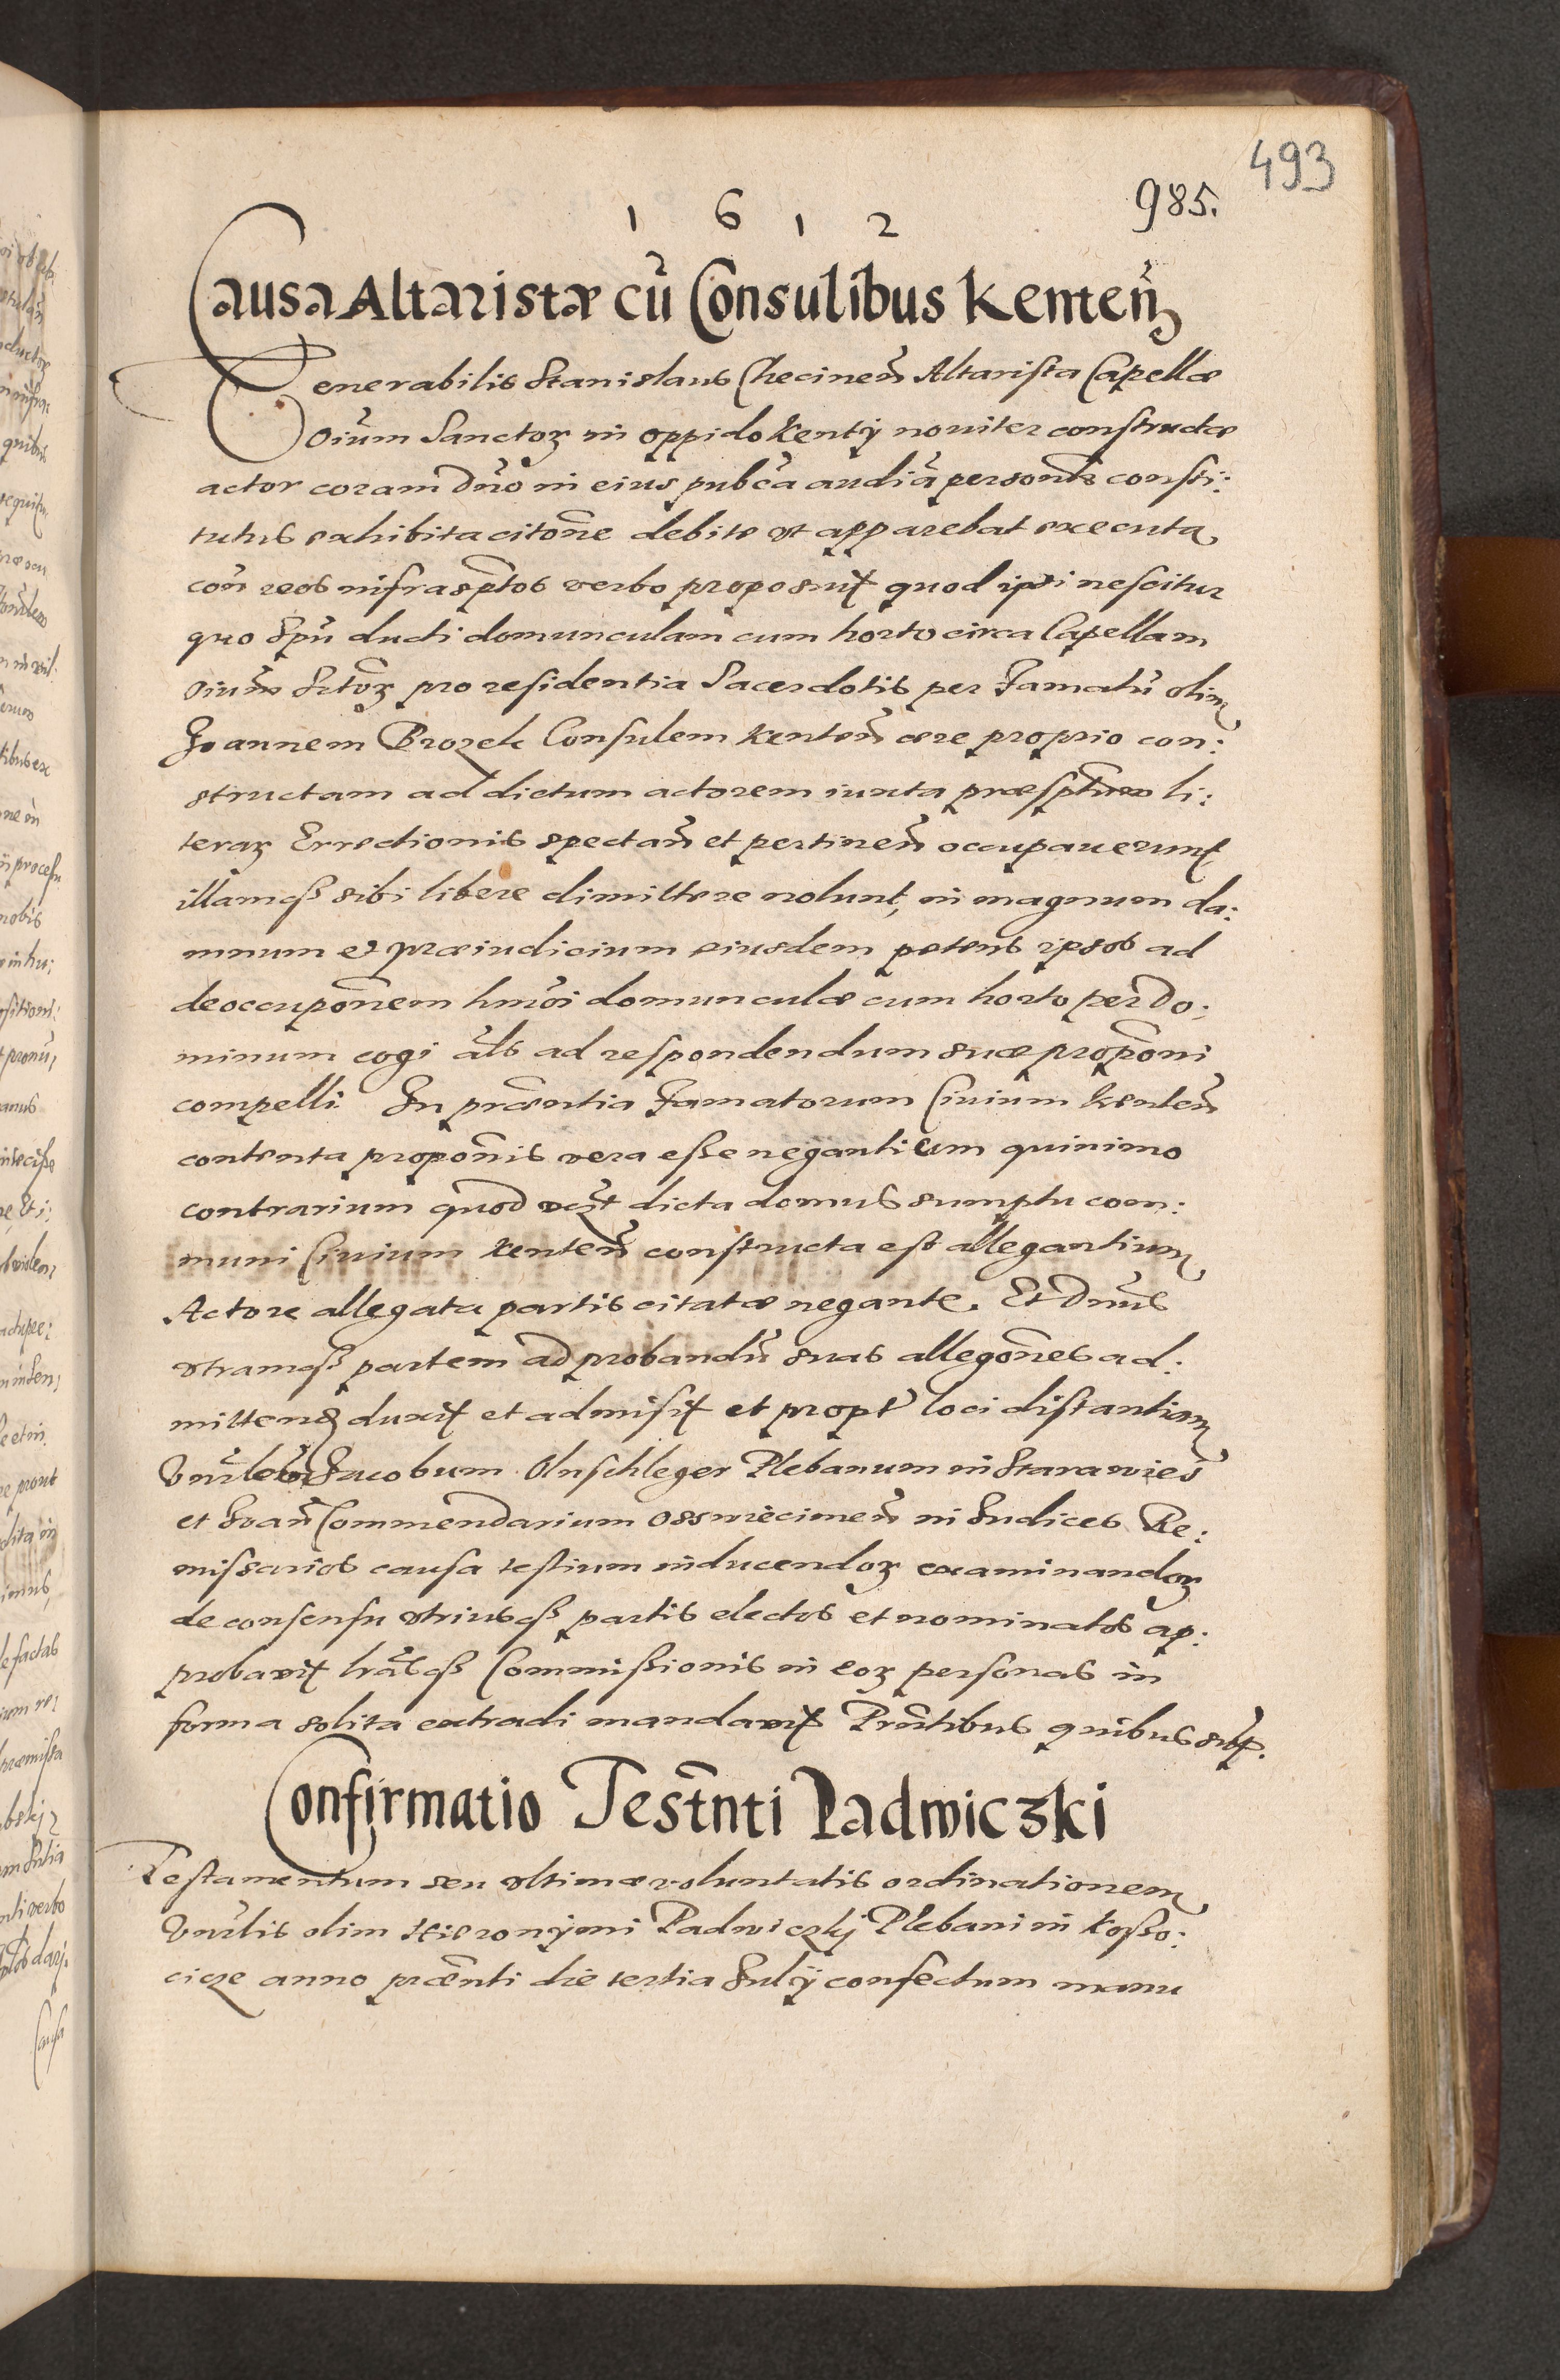 493
985.
1 6 1 2
Causa Altaristæ cū Consulibus Kenteñ
Venerabilis Stanislaus Checineñ Altarista Capellæ
Oiūm Sanctoꝝ in oppido Kentÿ nouiter constructæ
actor coram Dn̄o in eius pubca audiā personlr consti:
tutus exhibita citōne debite vt apparebat executa
coñ reos infrasptos verbo proposuit quod ipsi nescitur
quo Spū ducti domunculam cum horto circa Capellam
Oiūm Sctoꝝ pro residentia Sacerdotis per Famatū olim
Joannem Brozek Consulem Kenteñ ære proprio con:
structam ad dictum actorem iuxta præsptum li:
teraꝝ Errectionis spectañ et pertineñ occupauerunt
illamqꝫ sibi libere dimittere nolunt, in magnum da:
mnum et præiudicium eiusdem petens ipsos ad
deoccupōnem hmōi domunculæ cum horto per Do:
minum cogi āls ad respondendum suæ propōni
compelli. In præntia Famatorum Ciuium Kenteñ
contenta propōnis vera esse negantium quinimo
contrarium quod vēzt dicta domus sumptu com:
muni Ciuium Kenteñ constructa est allegantium
Actore allegata partis citatæ negante. Et Dnūs
vtramqꝫ partem ad probandū suas allegōnes ad:
mittenꝺ duxit et admisit et propt loci distantiam
Vnrlem Jacobum Olnschleger Plebanum in Starawieś
et Joañ Commendarium Osswiecimeñ in Judices Re:
missarios causa testium inducendoꝝ examinandoꝝ
de consensu vtriusqꝫ partis electos et nominatos ap:
probavit lrāsqꝫ Commißionis in eoꝝ personas in
forma solita extradi mandavit Prntibus quibus supr.
Confirmatio Testnti Padwiczki
Testamentum seu vltimæ voluntatis ordinationem
Vnrlis olim Hieronÿmi Padwiczkj Plebani in Koßo:
cicze anno prænti die tertia Julÿ confectum manu